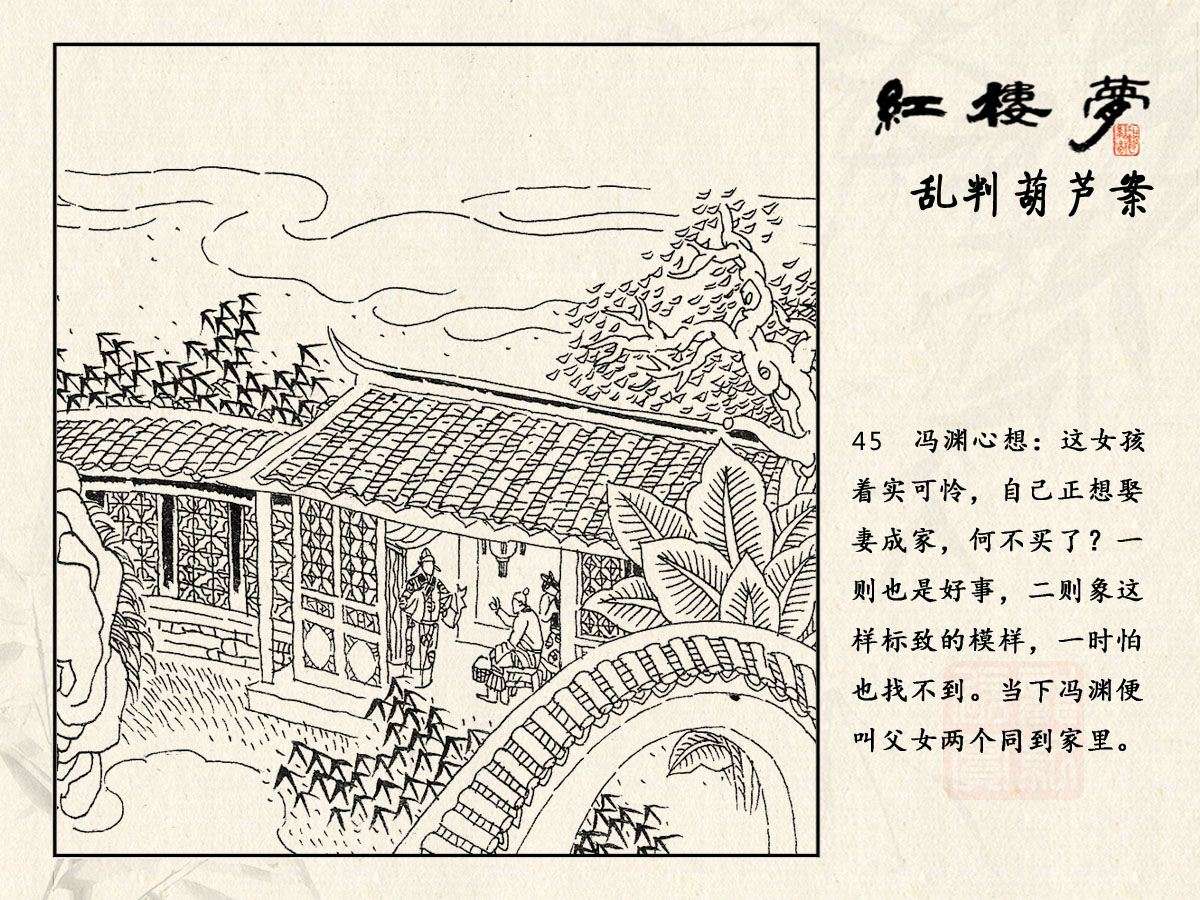 紅樓夢
乱判葫芦案
45 冯渊心想：这女孩
着实可怜，自己正想娶
妻成家，何不买了？一
则也是好事，二则象这
样标致的模样，一时怕
也找不到。当下冯渊便
叫父女两个同到家里。